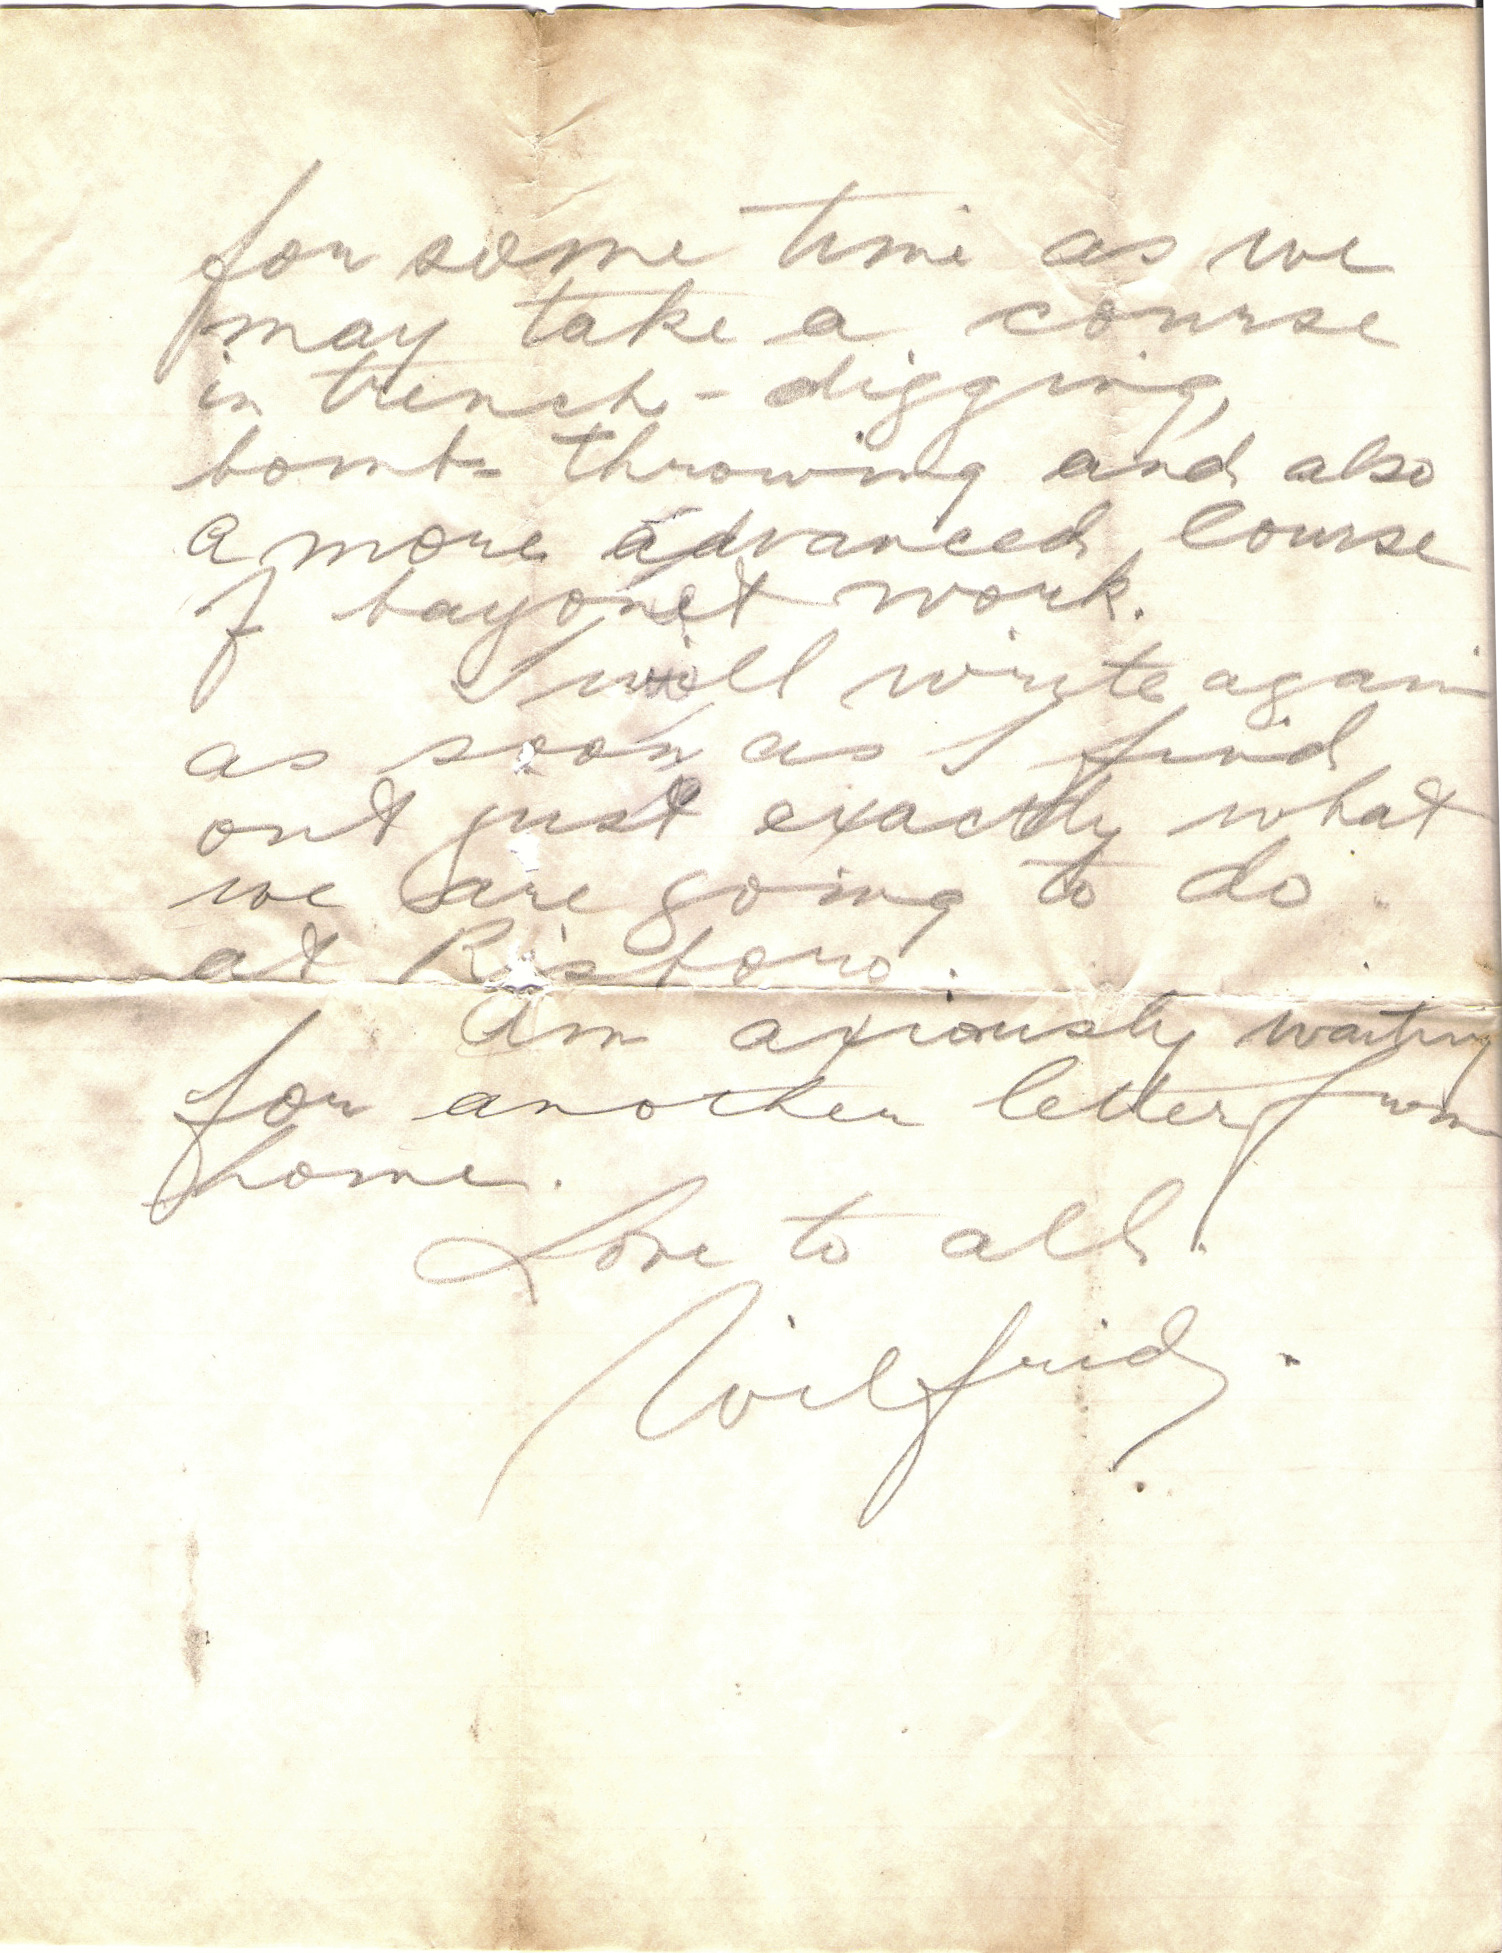 for some time as we
may take a course
in trench-digging,
bomb-throwing and also
a more advanced course
of bayonet work.
I will write again
as soon as I find
out just exactly what
we are going to do
at Risboro.
Am axiously waiting
for another letter from
home.
Love to all.
Wilfrid.